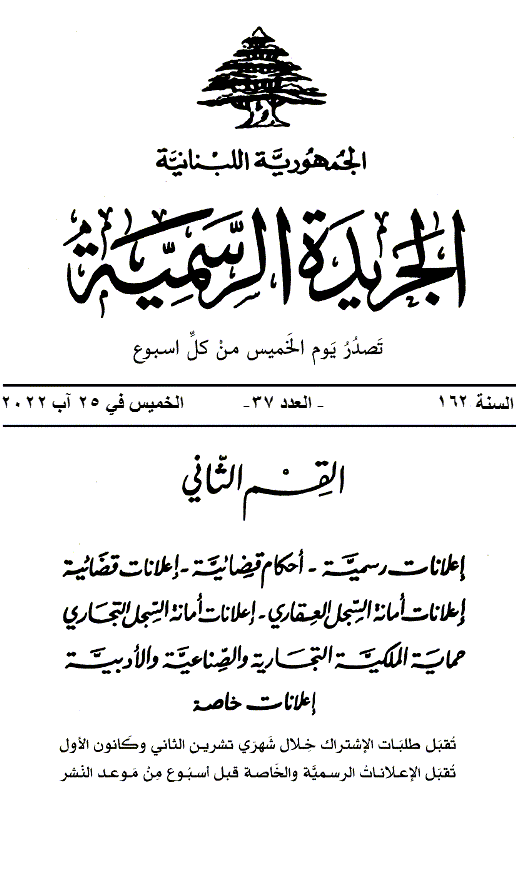 الجمهورية اللبنانية
الجريدة الرسمية
تَصدُرُ يَوم الخَميس منْ كلِّ اسبوع
السنة ١٦٢ - العدد ٣٧- الخميس في ٢٥ آب ٢٠٢٢
القِسْم الثّاني
إعلانات رسميَّة - أحكام قضائيَّة - إعلانات قضائية
إعلانات أمانة السِّجل العقاري - إعلانات أمانة السِّجل التجاري
حماية الملكيَّة التجارية والصِّناعيَّة والأدبيَّة
إعلانات خاصة
تُقبَل طلبَات الإشتراك خِلال شَهرَي تشرين الثاني وكَانون الأول
تُقبَل الإعلاناتُ الرسميَّة والخَاصة قبل أسبُوع مِنْ مَوعد النَشر